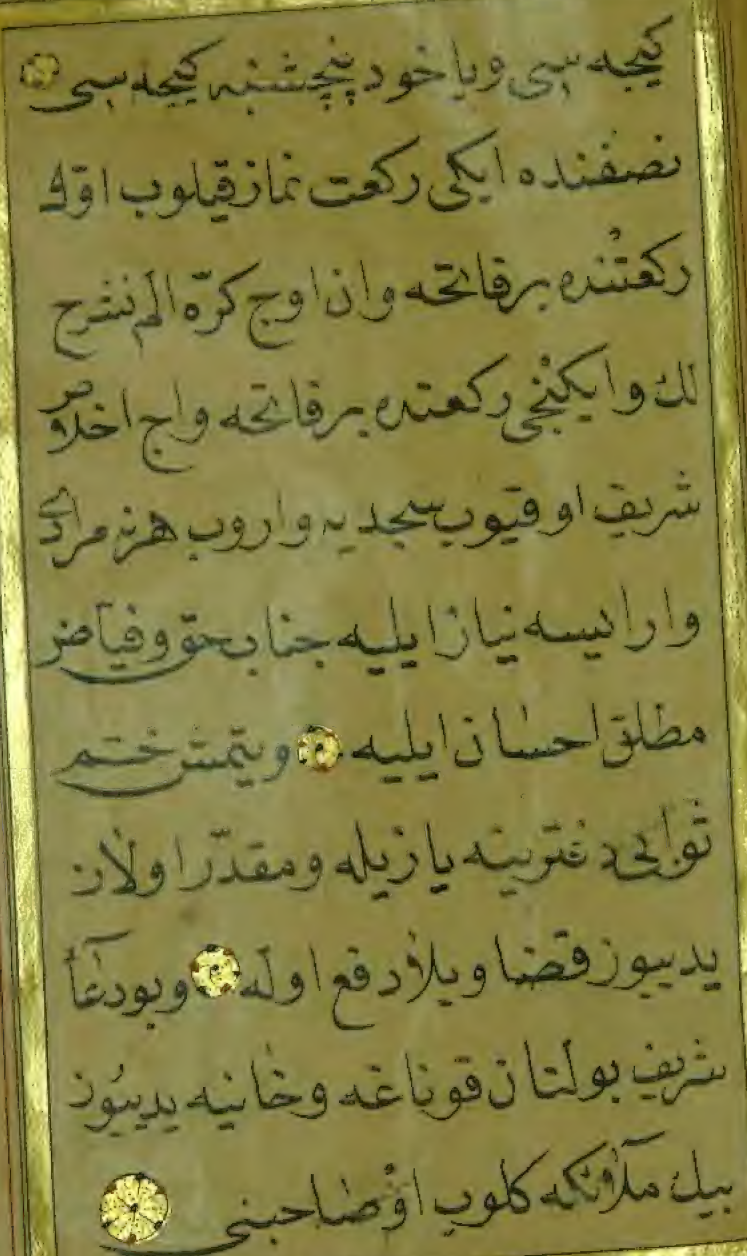 كيجه سى ويا خود پنچشنبه كيجه سى
نصفنده ايكى ركعت نماز قيلوب اوّل
ركعتنده بر فاتحه وان اوچ كرّه الم نشرح
لك وايكنجى ركعتده بر فاتحه واچ اخلاص
شريف اوقيوب سجديه واروب هرنه مرادى
وار ايسه نياز ايليه جناب حق وفياض
مطلق احسان ايليه ويتمش ختم
ثوابى دفترينه يازيله ومقدّر اولان
يديوز قضا وبلا دفع اوله وبو دعاء
شريف بولنان قوناغه وخانيه يديوز
بيك ملائكه كلوب اوْ صاحبنى